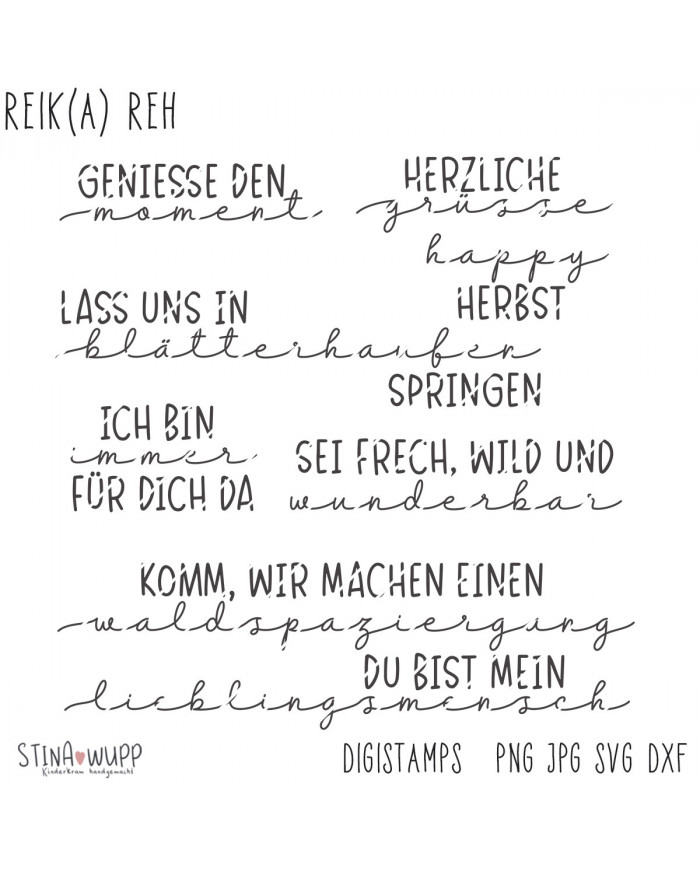 REIK(A) REH
GENIESSE DEN
moment
HERZLICHE
grüsse
happy
HERBST
LASS UNS IN
blätterhaufen
SPRINGEN
ICH BIN
immer
FÜR DICH DA
SEI FRECH, WILD UND
wunderbar
KOMM, WIR MACHEN EINEN
waldspaziergang
DU BIST MEIN
lieblingsmensch
STINA WUPP
Kinderkram handgemacht
DIGISTAMPS PNG JPG SVG DXF